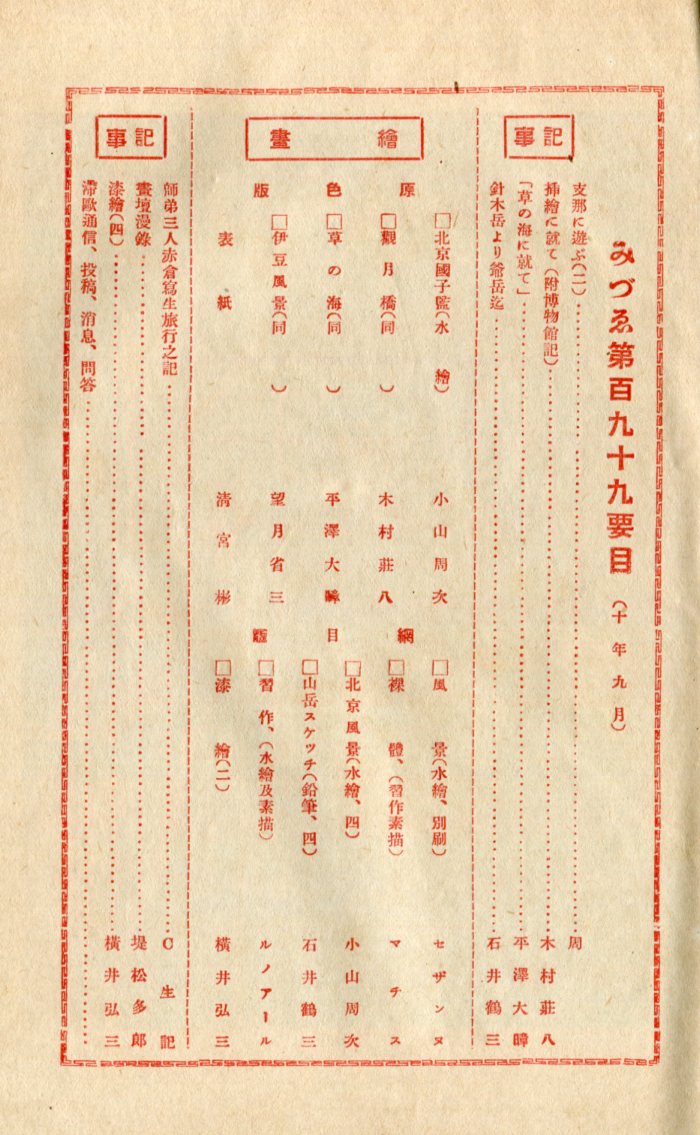 みづゑ第百九十九要目（十年九月）
記事
支那に遊ぶ（二）……周
挿繪に就て（附博物館記）……木村莊八
「草の海に就て」……平澤大暲
針木岳より爺岳迄……石井鶴三
繪畫
原色版
□北京國子監（水繪）　小山周次
□觀月橋（同　）　木村莊八
□草の海（同　）　平澤大暲
□伊豆風景（同　）　望月省三
表紙　淸宮彬
網目版
□風景（水繪、別刷）　セザンヌ
□裸體、（習作素描）　マチス
□北京風景（水繪、四）　小山周次
□山岳スケッチ（鉛筆、四）　石井鶴三
□習作、（水繪及素描）　ルノアール
□漆繪（二）　橫井弘三
記事
師弟三人赤倉寫生旅行之記……C生記
畫壇漫錄……堤松多郎
漆繪（四）……橫井弘三
滯歐通信、投稿、消息、問答……